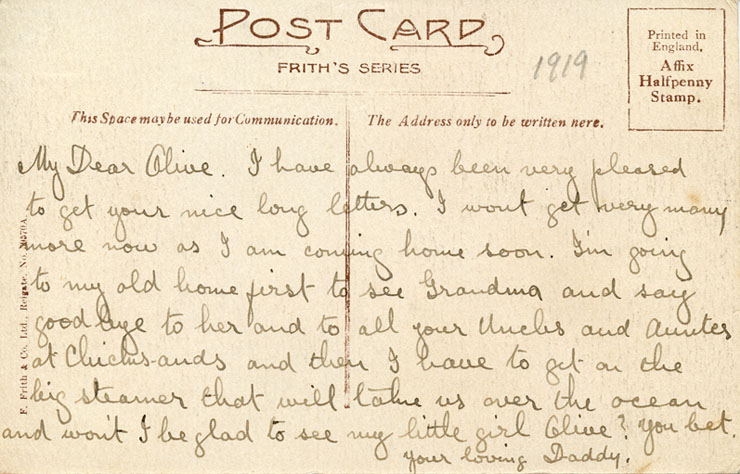 POST CARD
FRITH'S SERIES
1919
Printed in
England.
Affix
Halfpenny
Stamp.
This Space may be used for Communication.
The Address only to be written here.
My Dear Olive. I have always been very pleased
to get your nice long letters. I wont get very many
more now as I am coming home soon. I'm going
to my old home first to see Grandma and say
good bye to her and to all your Uncles and Aunties
at Chicksands and then I have to get on the
big steamer that will take us over the ocean
and won't I be glad to see my little girl Olive? You bet.
Your loving Daddy.
F. Frith & Co. Ltd., Reigate. No.